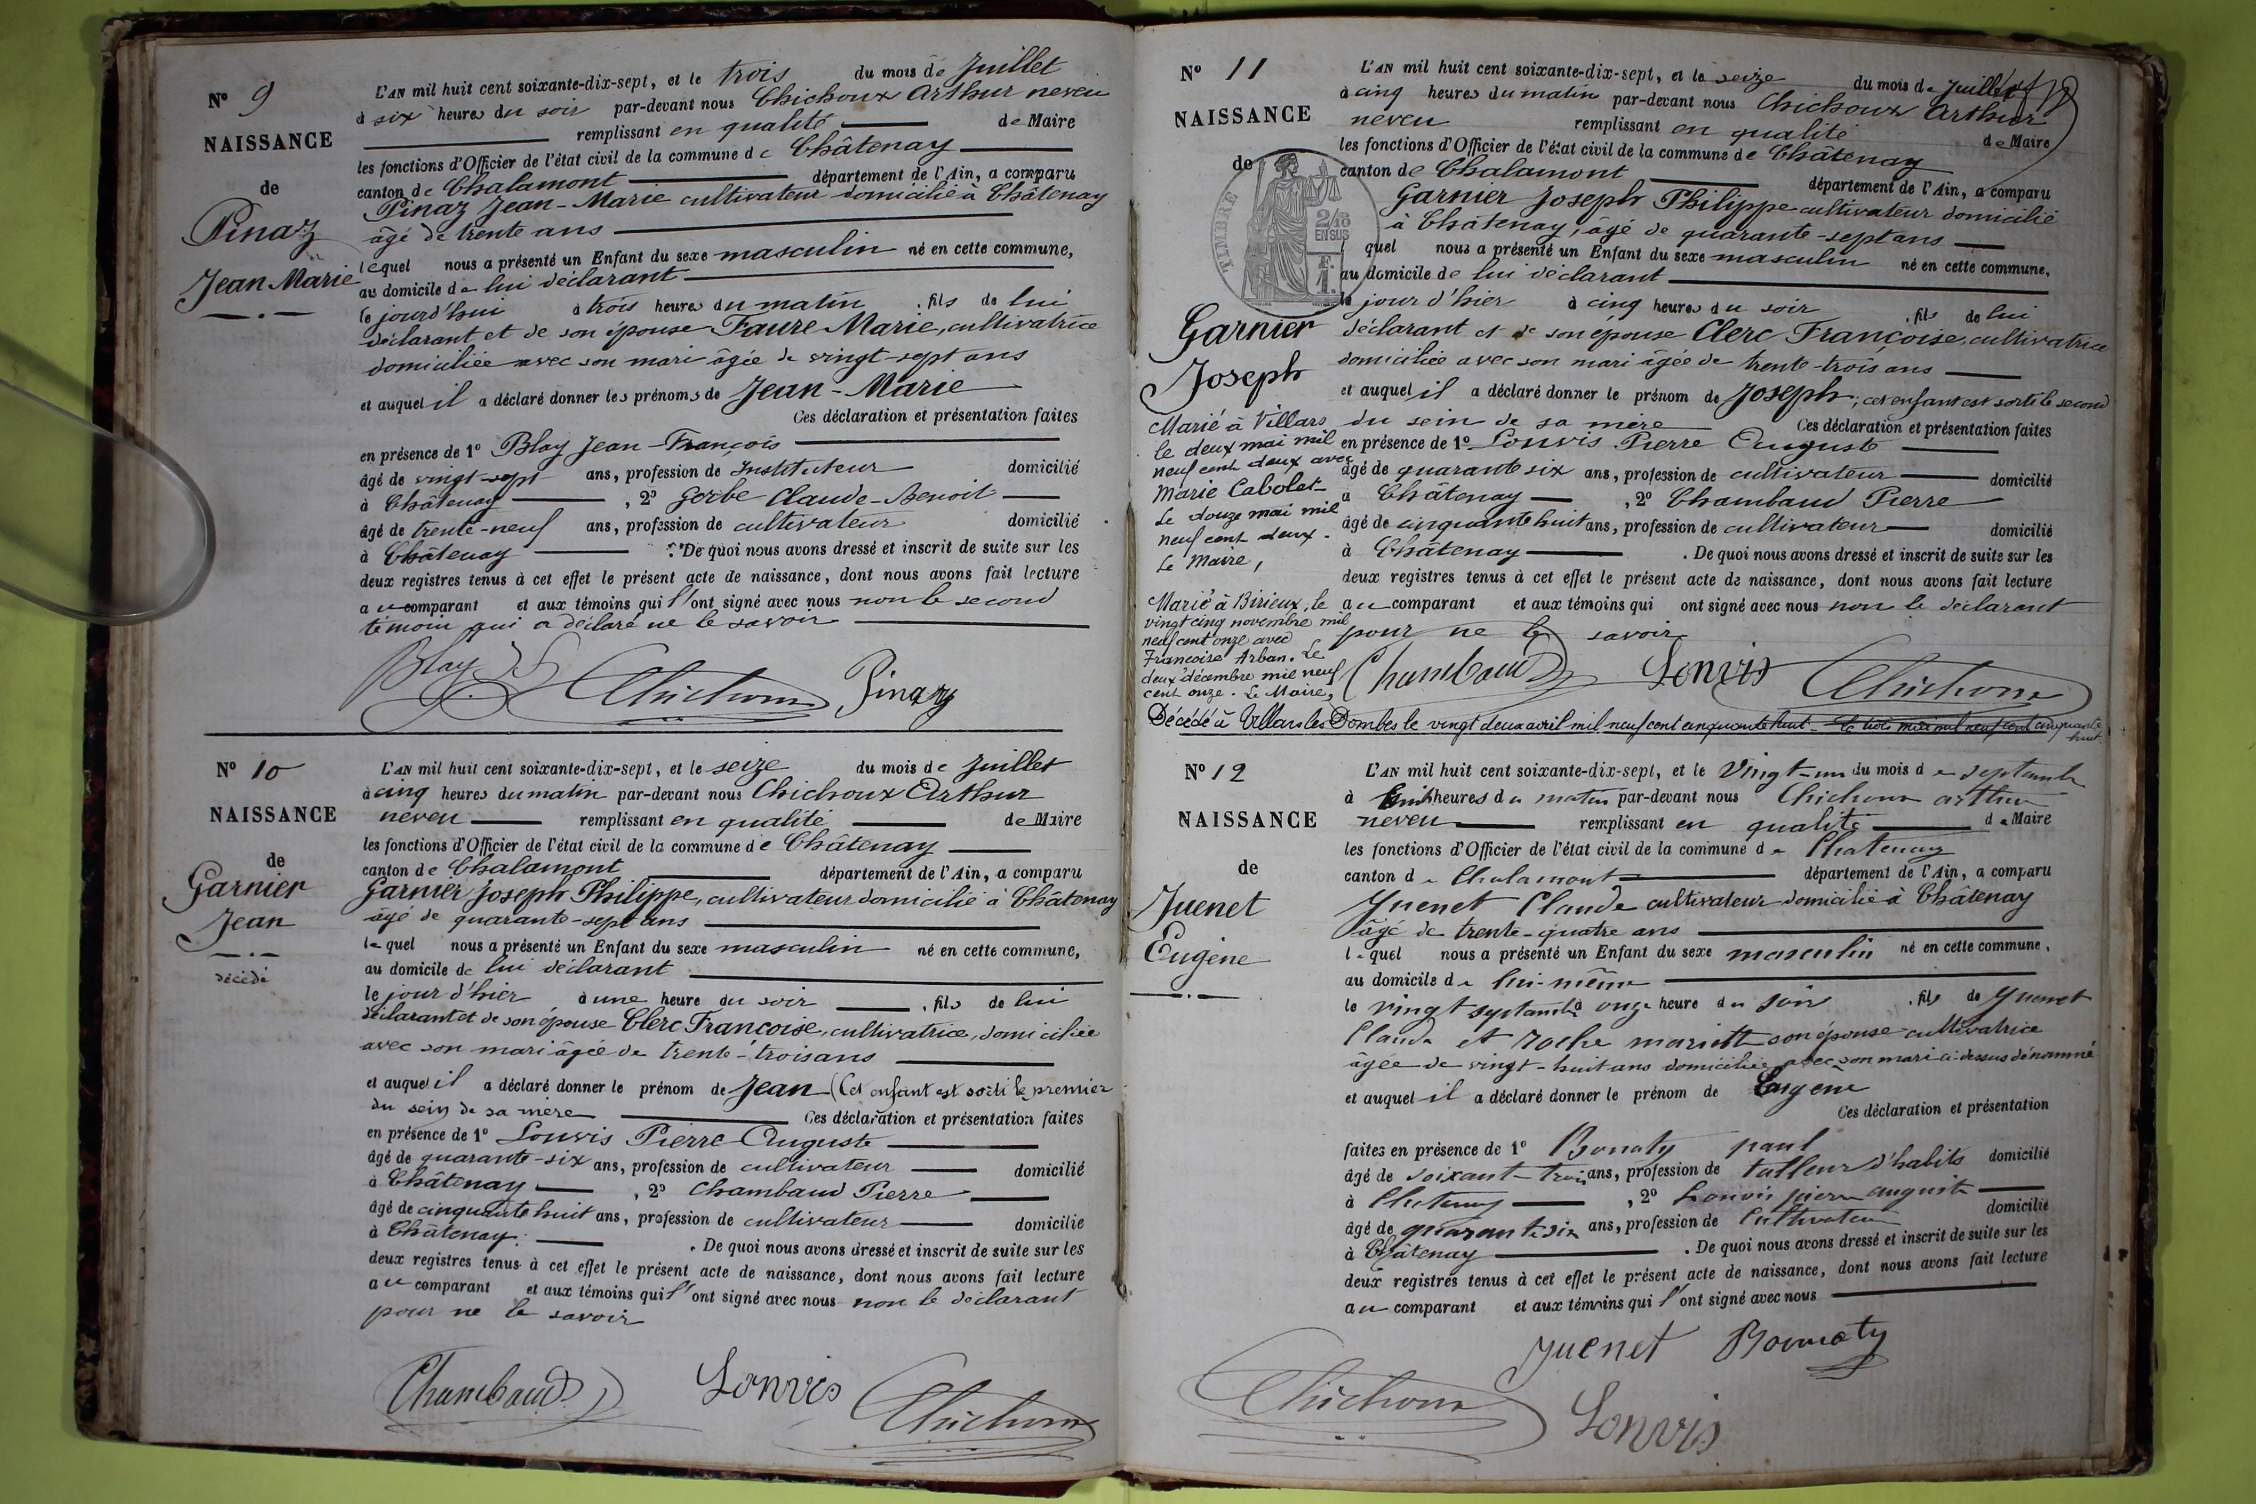 N° 9
NAISSANCE
de
Pinaz
Jean Marie
L'AN mil huit cent soixante-dix-sept, et le trois du mois de Juillet
à six heures du soir par-devant nous Chichoux Arthur neveu
remplissant en qualité de Maire
les fonctions d'Officier de l'état civil de la commune de Châtenay
canton de Chalamont département de l'Ain, a comparu
Pinaz Jean-Marie cultivateur domicilié à Châtenay
âgé de trente ans
lequel nous a présenté un Enfant du sexe masculin né en cette commune,
au domicile de lui déclarant
le jourd'hui à trois heures du matin, fils de lui
déclarant et de son épouse Faure Marie, cultivatrice
domiciliée avec son mari âgée de vingt-sept ans
et auquel il a déclaré donner les prénoms de Jean-Marie
Ces déclaration et présentation faites
en présence de 1° Blay Jean-François
âgé de vingt-sept ans, profession de Instituteur domicilié
à Châtenay, 2° Gerbe Claude-Benoit
âgé de trente-neuf ans, profession de cultivateur domicilié
à Châtenay. De quoi nous avons dressé et inscrit de suite sur les
deux registres tenus à cet effet le présent acte de naissance, dont nous avons fait lecture
au comparant et aux témoins qui l'ont signé avec nous non le second
témoin qui a déclaré ne le savoir
Blay Chichoux Pinaz
N° 10
NAISSANCE
de
Garnier
Jean
décédé
L'AN mil huit cent soixante-dix-sept, et le seize du mois de Juillet
à cinq heures du matin par-devant nous Chichoux Arthur
neveu remplissant en qualité de Maire
les fonctions d'Officier de l'état civil de la commune de Châtenay
canton de Chalamont département de l'Ain, a comparu
Garnier Joseph Philippe, cultivateur domicilié à Châtenay
âgé de quarante-sept ans
lequel nous a présenté un Enfant du sexe masculin né en cette commune,
au domicile de lui déclarant
le jour d'hier à une heure du soir, fils de lui
déclarant et de son épouse Clerc Françoise, cultivatrice, domiciliée
avec son mari âgée de trente-trois ans
et auquel il a déclaré donner le prénom de Jean (Cet enfant est sorti le premier
du sein de sa mère Ces déclaration et présentation faites
en présence de 1° Louvis Pierre Auguste
âgé de quarante-six ans, profession de cultivateur domicilié
à Châtenay, 2° Chambaud Pierre
âgé de cinquante huit ans, profession de cultivateur domicilié
à Châtenay. De quoi nous avons dressé et inscrit de suite sur les
deux registres tenus à cet effet le présent acte de naissance, dont nous avons fait lecture
au comparant et aux témoins qui l'ont signé avec nous non le déclarant
pour ne le savoir
Chambaud Louvis Chichoux
N° 11
NAISSANCE
de
TIMBRE
2/10 EN SUS
Garnier
Joseph
Marié à Villars
le deux mai mil
neuf cent deux avec
Marie Cabolet
Le douze mai mil
neuf cent deux.
Le Maire,
Marié à Birieux, le
vingt cinq novembre mil
neuf cent onze avec
Françoise Arban. Le
deux décembre mil neuf
cent onze. Le Maire,
L'AN mil huit cent soixante-dix-sept, et le seize du mois de Juillet
à cinq heures du matin par-devant nous Chichoux Arthur
neveu remplissant en qualité de Maire
les fonctions d'Officier de l'état civil de la commune de Châtenay
canton de Chalamont département de l'Ain, a comparu
Garnier Joseph Philippe cultivateur domicilié
à Châtenay, âgé de quarante-sept ans
quel nous a présenté un Enfant du sexe masculin né en cette commune,
au domicile de lui déclarant
le jour d'hier à cinq heures du soir, fils de lui
déclarant et de son épouse Clerc Françoise, cultivatrice
domiciliée avec son mari âgée de trente-trois ans
et auquel il a déclaré donner le prénom de Joseph; cet enfant est sorti le second
du sein de sa mère Ces déclaration et présentation faites
en présence de 1° Louvis Pierre Auguste
âgé de quarante six ans, profession de cultivateur domicilié
à Châtenay, 2° Chambaud Pierre
âgé de cinquante huit ans, profession de cultivateur domicilié
à Châtenay. De quoi nous avons dressé et inscrit de suite sur les
deux registres tenus à cet effet le présent acte de naissance, dont nous avons fait lecture
au comparant et aux témoins qui ont signé avec nous non le déclarant
pour ne le savoir
Chambaud Louvis Chichoux
Décédé à Villars les Dombes le vingt deux avril mil neuf cent cinquante huit - le trois mai mil neuf cent cinquante
huit.
N° 12
NAISSANCE
de
Juenet
Eugène
L'AN mil huit cent soixante-dix-sept, et le Vingt-un du mois de septembre
à huit heures du matin par-devant nous Chichoux arthur
neveu remplissant en qualité de Maire
les fonctions d'Officier de l'état civil de la commune de Chatenay
canton de Chalamont département de l'Ain, a comparu
Juenet Claude cultivateur domicilié à Châtenay
âgé de trente-quatre ans
lequel nous a présenté un Enfant du sexe masculin né en cette commune,
au domicile de lui-même
le vingt septembre à onze heure du soir, fils de Juenet
Claude et Roche mariett son épouse cultivatrice
âgée de vingt-huit ans domiciliée avec son mari ci-dessus dénommé
et auquel il a déclaré donner le prénom de Eugène
Ces déclaration et présentation
faites en présence de 1° Bonnaty paul
âgé de soixant-trois ans, profession de tailleur d'habits domicilié
à Chatenay, 2° Louvis pierre auguste
âgé de quarante six ans, profession de Cultivateur domicilié
à Châtenay. De quoi nous avons dressé et inscrit de suite sur les
deux registres tenus à cet effet le présent acte de naissance, dont nous avons fait lecture
au comparant et aux témoins qui l'ont signé avec nous
Juenet Bonnaty
Chichoux Louvis